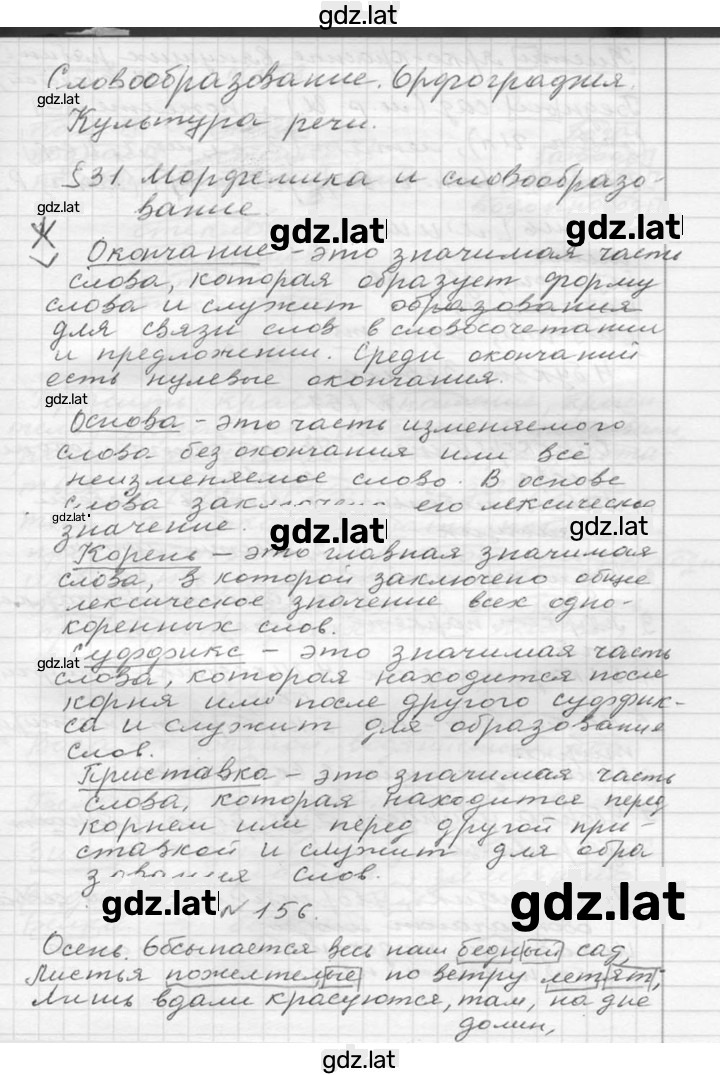 gdz.lat
Словообразование. Орфография.
gdz.lat
Культура речи.
§31. Морфемика и словообразо-
вание.
gdz.lat
gdz.lat
gdz.lat
Окончание - это значимая часть
gdz.lat
слова, которая образует форму
слова и служит образования
для связи слов в словосочетании
и предложении. Среди окончаний
есть нулевые окончания.
gdz.lat
Основа - это часть изменяемого
слова без окончания или всё
неизменяемое слово. В основе
слова его лексическо
gdz.lat
значение
gdz.lat
gdz.lat
Корень - это главная значимая
слова, в которой заключено общее
лексическое значение всех одно-
коренных слов.
Суффикс - это значимая часть
gdz.lat
слова, которая находится после
корня или после другого суффик-
са и служит для образование
слов.
Приставка - это значимая часть
gdz.lat
слова, которая находится перед
корнем или перед другой при-
ставкой и служит для обра
gdz.lat
зования слов.
gdz.lat
gdz.lat
№156.
Осень. Обсыпается весь наш бедный сад,
Листья пожелтелые по ветру летят;
Лишь вдали красуются, там, на дне
долин,
gdz.lat